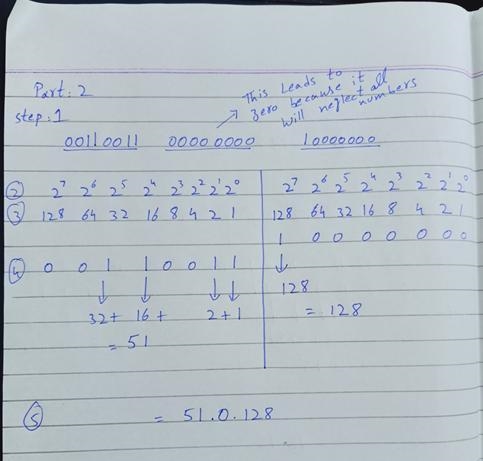 Part: 2
This Leads to
zero because it
will neglect all
numbers
step: 1
00110011 00000000 10000000
② 2⁷ 2⁶ 2⁵ 2⁴ 2³ 2² 2¹ 2⁰ 2⁷ 2⁶ 2⁵ 2⁴ 2³ 2² 2¹ 2⁰
③ 128 64 32 16 8 4 2 1 128 64 32 16 8 4 2 1
1 0 0 0 0 0 0 0
④ 0 0 1 1 0 0 1 1
128
32+ 16+ 2+1 = 128
= 51
⑤ = 51.0.128